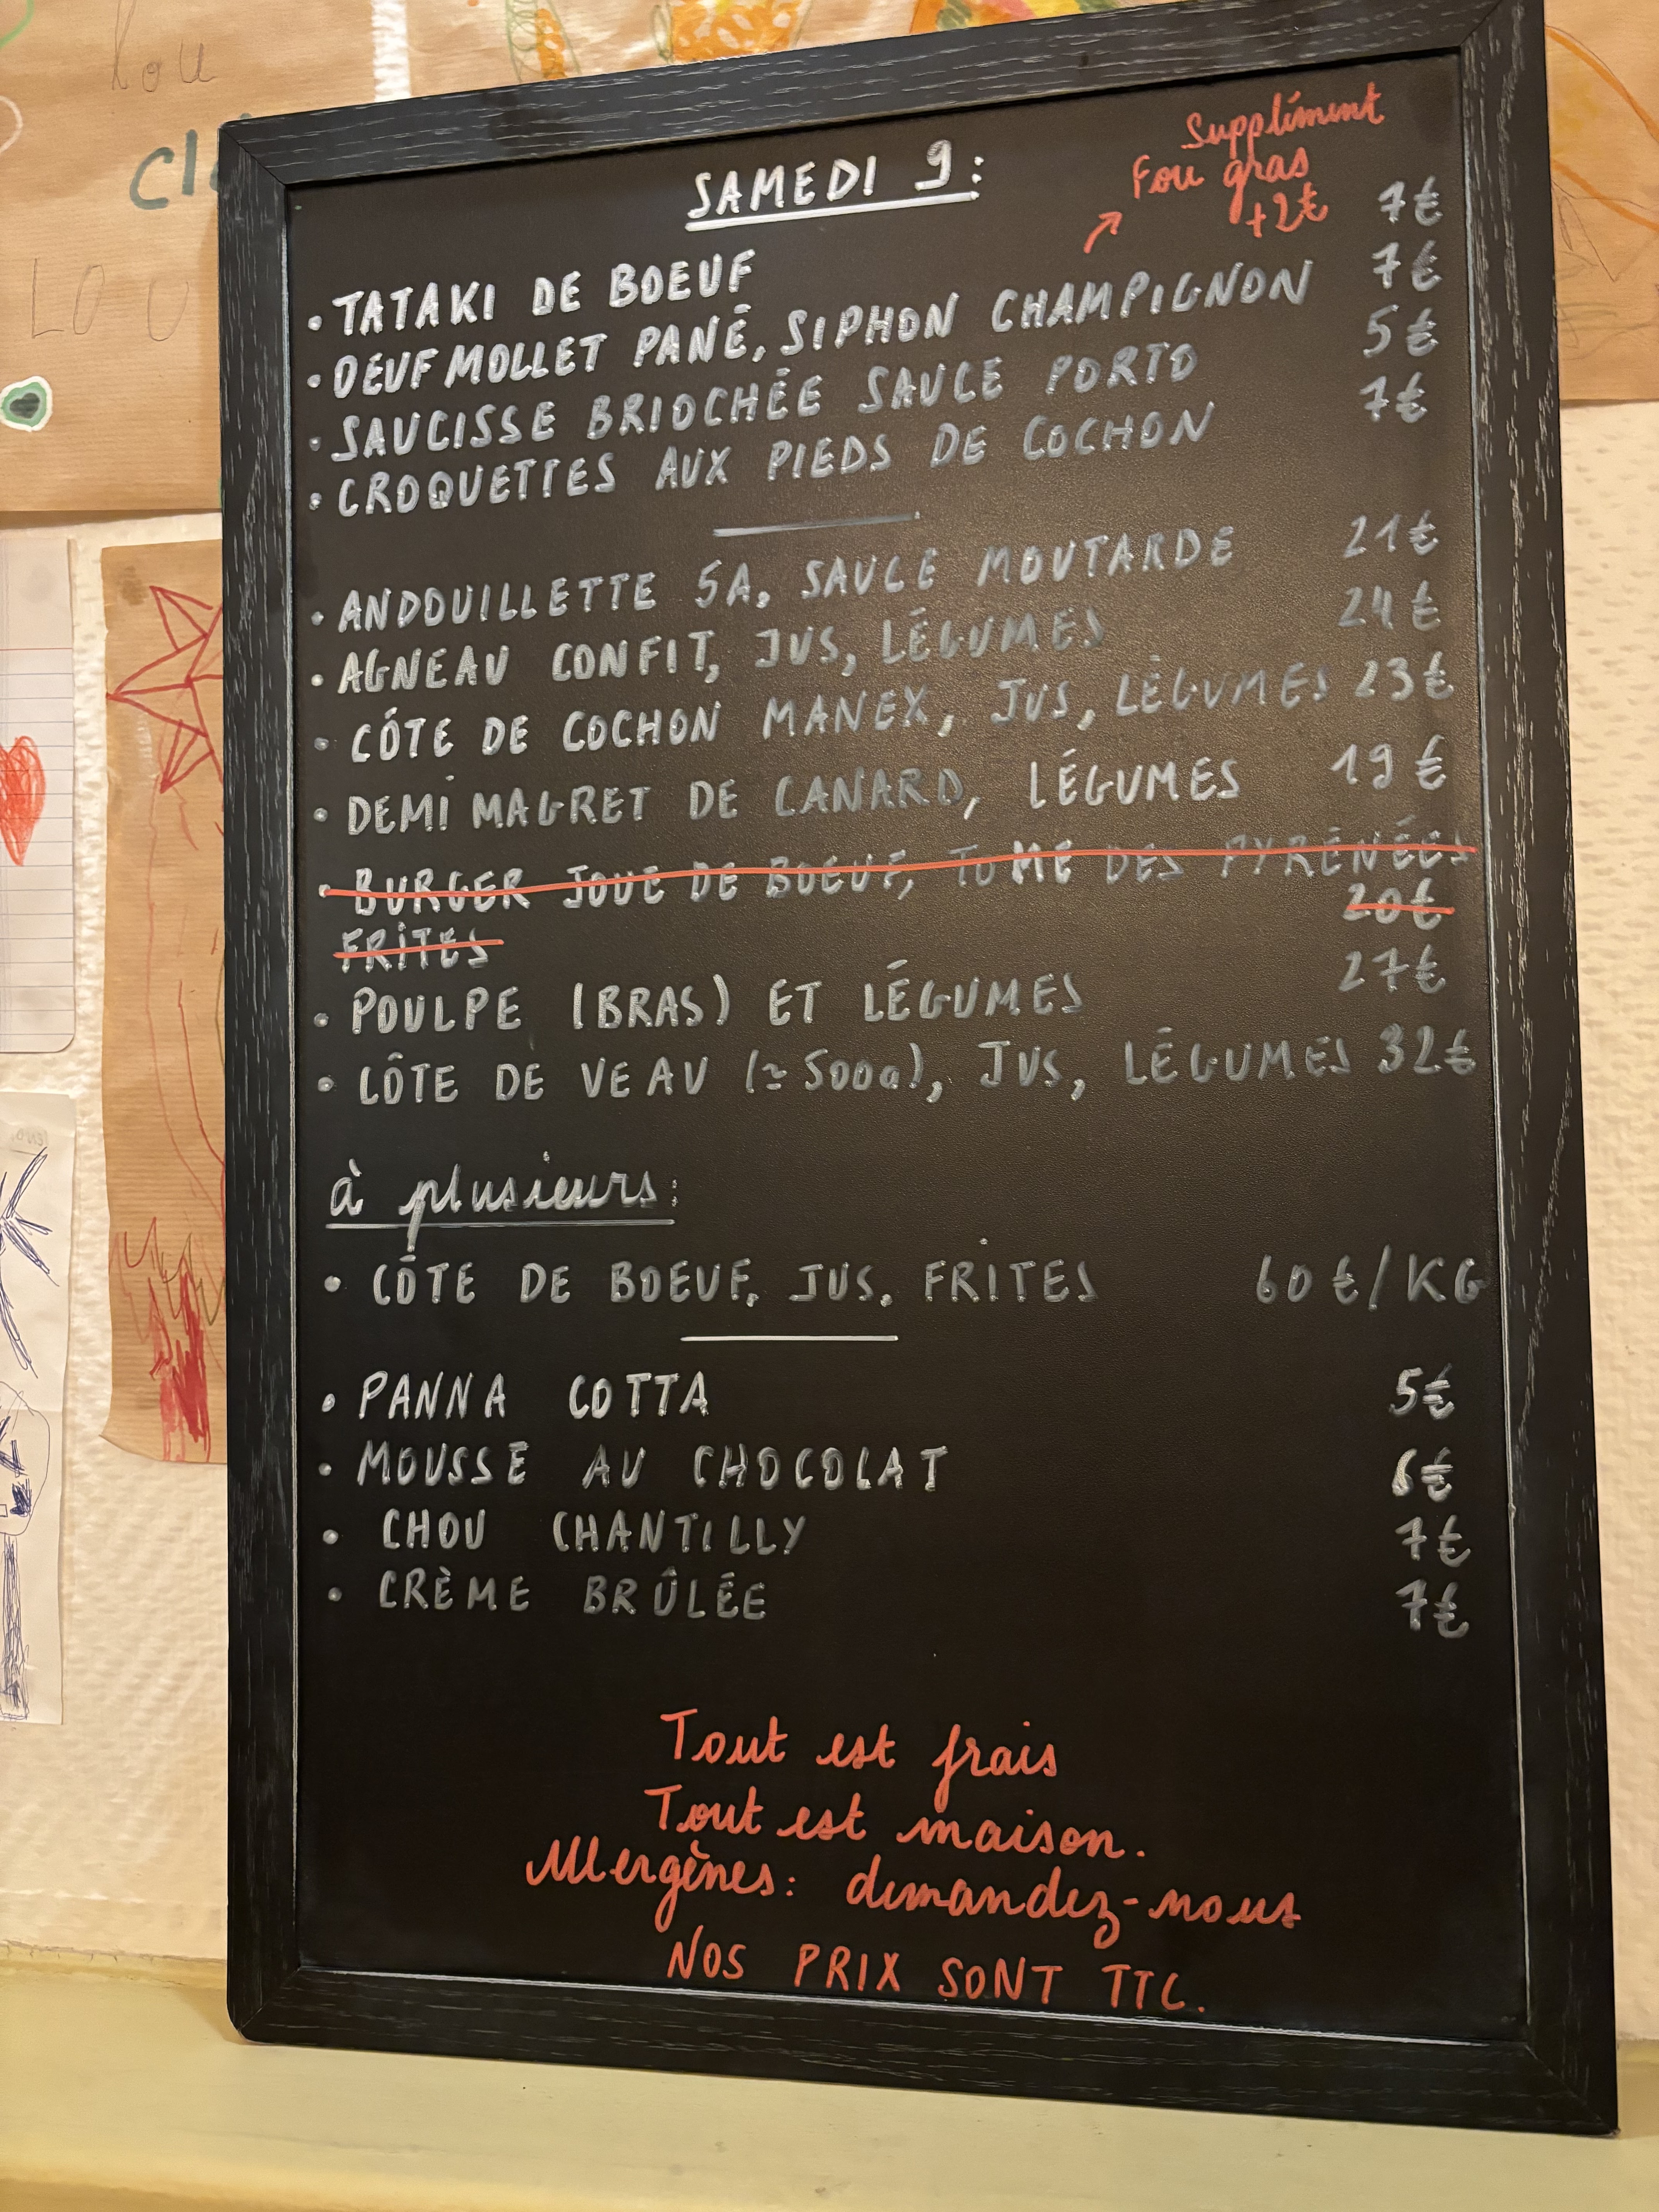 Lou
Clé
LOU
Supplément
Foie gras
+2€
SAMEDI 9:
• TATAKI DE BOEUF 7€
• OEUF MOLLET PANÉ, SIPHON CHAMPIGNON 7€
• SAUCISSE BRIOCHÉE SAUCE PORTO 5€
• CROQUETTES AUX PIEDS DE COCHON 7€
• ANDOUILLETTE 5A, SAUCE MOUTARDE 21€
• AGNEAU CONFIT, JUS, LÉGUMES 24€
• CÔTE DE COCHON MANEX, JUS, LÉGUMES 23€
• DEMI MAGRET DE CANARD, LÉGUMES 19€
• BURGER JOUE DE BOEUF, TOME DES PYRÉNÉES
FRITES 20€
• POULPE (BRAS) ET LÉGUMES 27€
• CÔTE DE VEAU (≃500g), JUS, LÉGUMES 32€
à plusieurs:
• CÔTE DE BOEUF, JUS, FRITES 60€/KG
• PANNA COTTA 5€
• MOUSSE AU CHOCOLAT 6€
• CHOU CHANTILLY 7€
• CRÈME BRÛLÉE 7€
Tout est frais
Tout est maison.
Allergènes: demandez-nous
NOS PRIX SONT TTC.